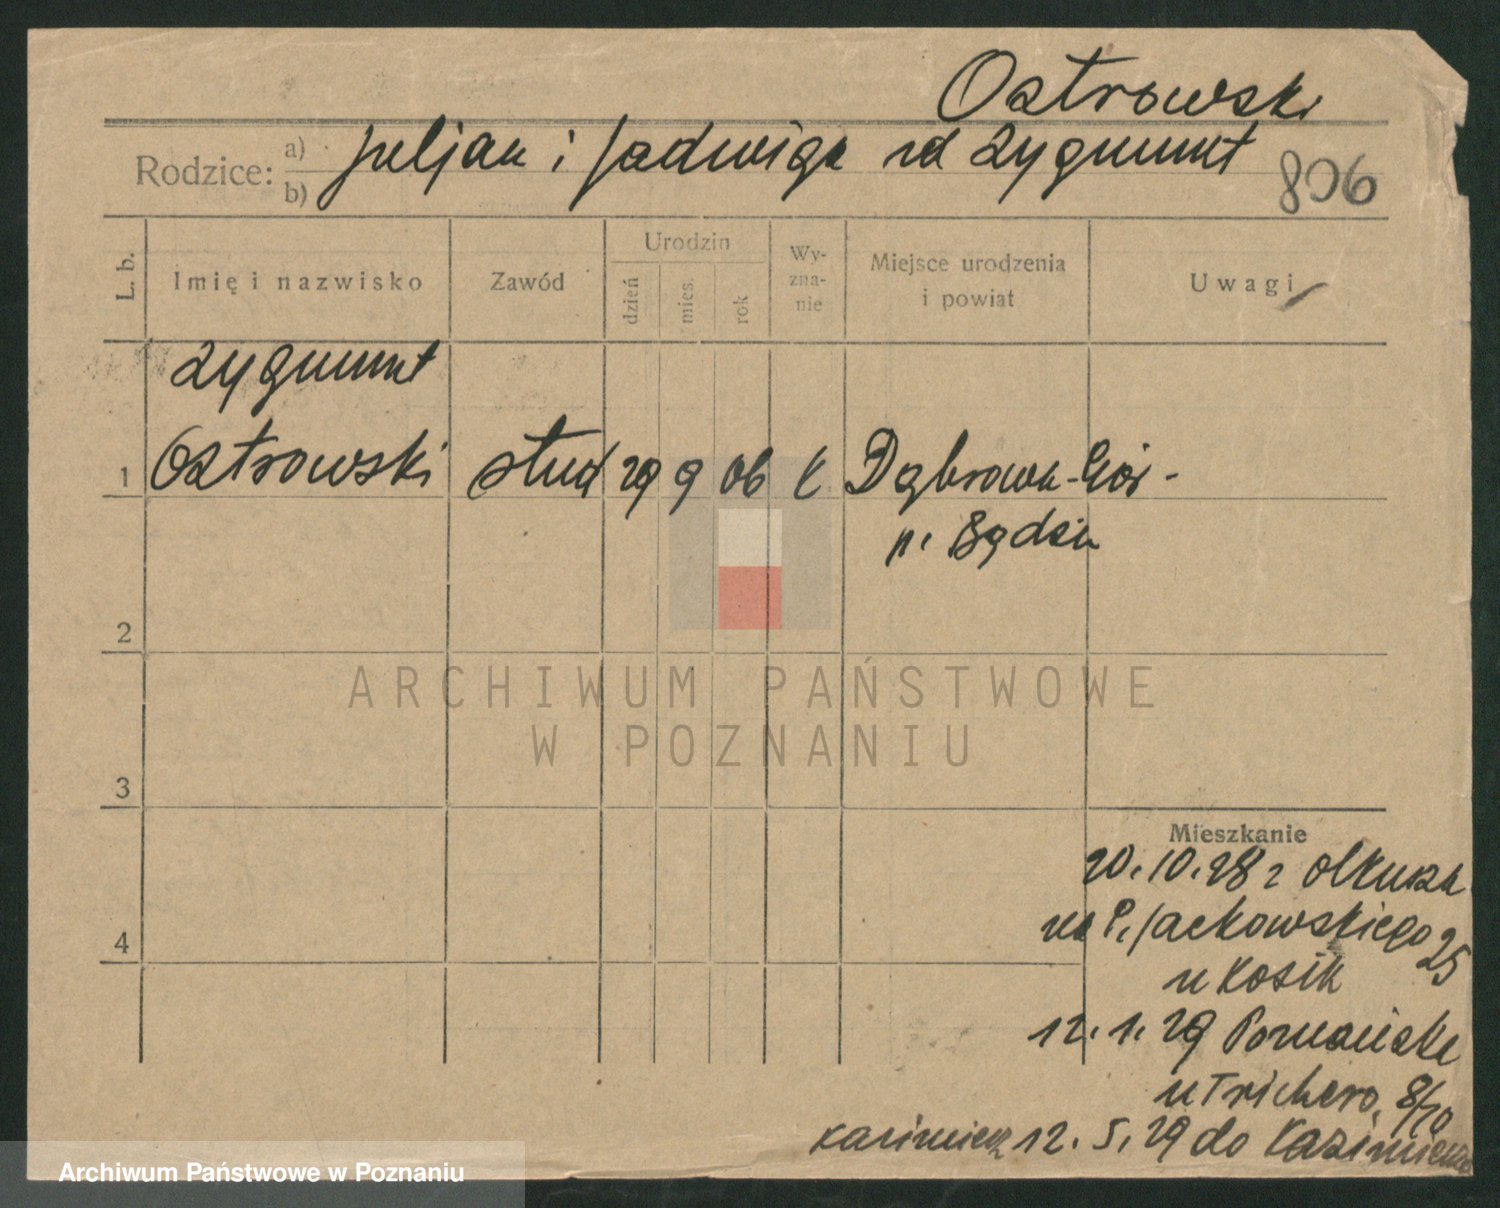 Ostrowski
Rodzice: a) b) Juljan i Jadwiga rd Zygmunt
806
L. b.
Imię i nazwisko
Zawód
Urodzin
dzień
mies.
rok
Wy-
zna-
nie
Miejsce urodzenia
i powiat
Uwagi
Zygmunt
1 Ostrowski stud 29 9 06 k Dąbrowa-Gór-
p. Będzin
2
3
4
Mieszkanie
20.10.28 z Olkusza
na P. Jackowskiego 25
u Kosik
12.1.29 Poznańska
u 8/10
Kazimierz 12.5.29 do Kazimierza
ARCHIWUM PAŃSTWOWE
W POZNANIU
Archiwum Państwowe w Poznaniu